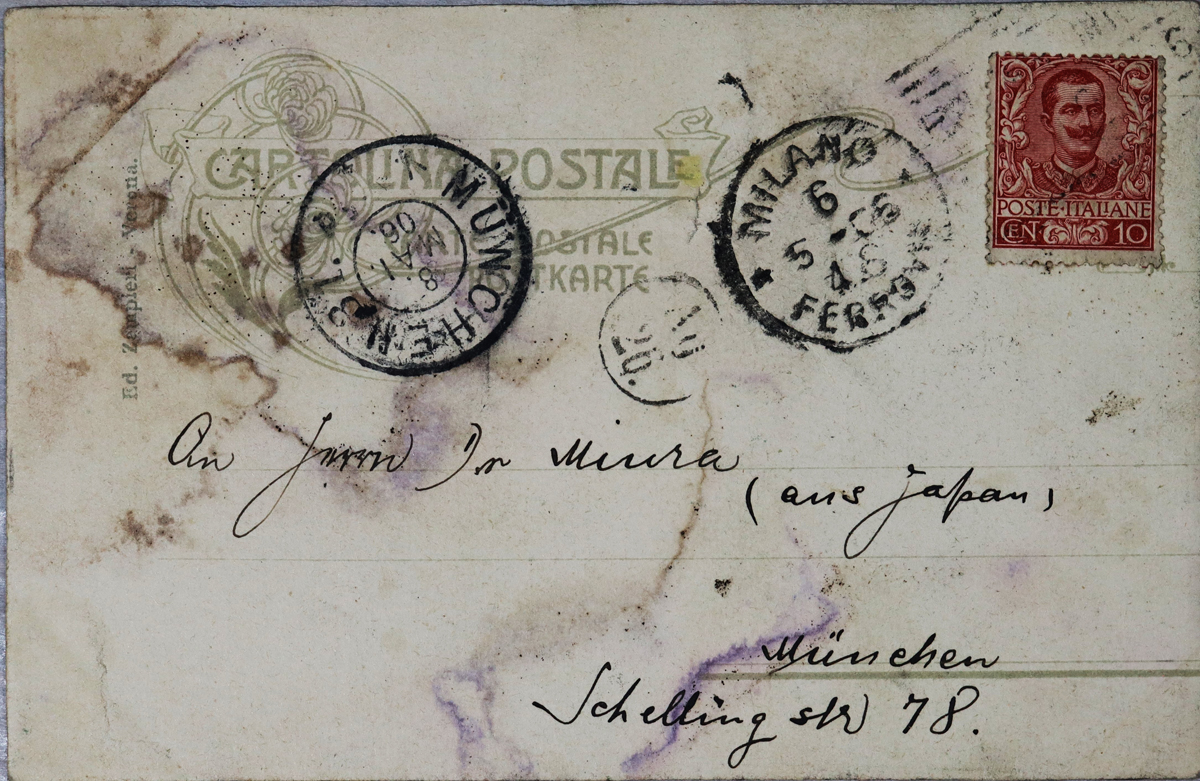 CARTOLINA POSTALE
POSTALE
POSTKARTE
Ed. Zempled, Verona.
MÜNCHEN 31.
8 MAI. 06.
MILANO
6
5-06
4 S
FERROVIA
POSTE·ITALIANE
CEN 10
An Herrn Dr Miura
(aus Japan)
München
Schelling str 78.